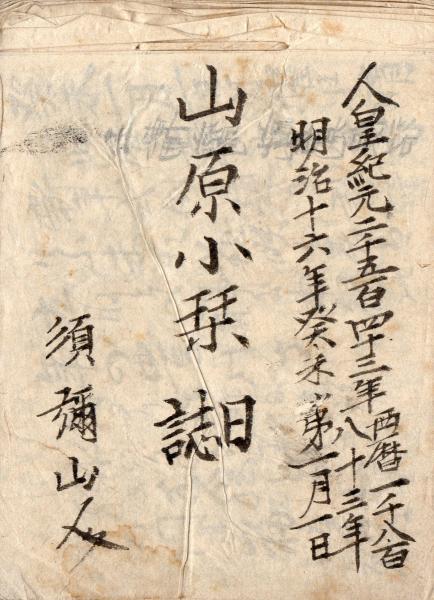 人皇紀元二千五百四十三年西暦一千八百
八十三年
明治十六年癸未第一月一日
山原小栞
日誌
須彌山人